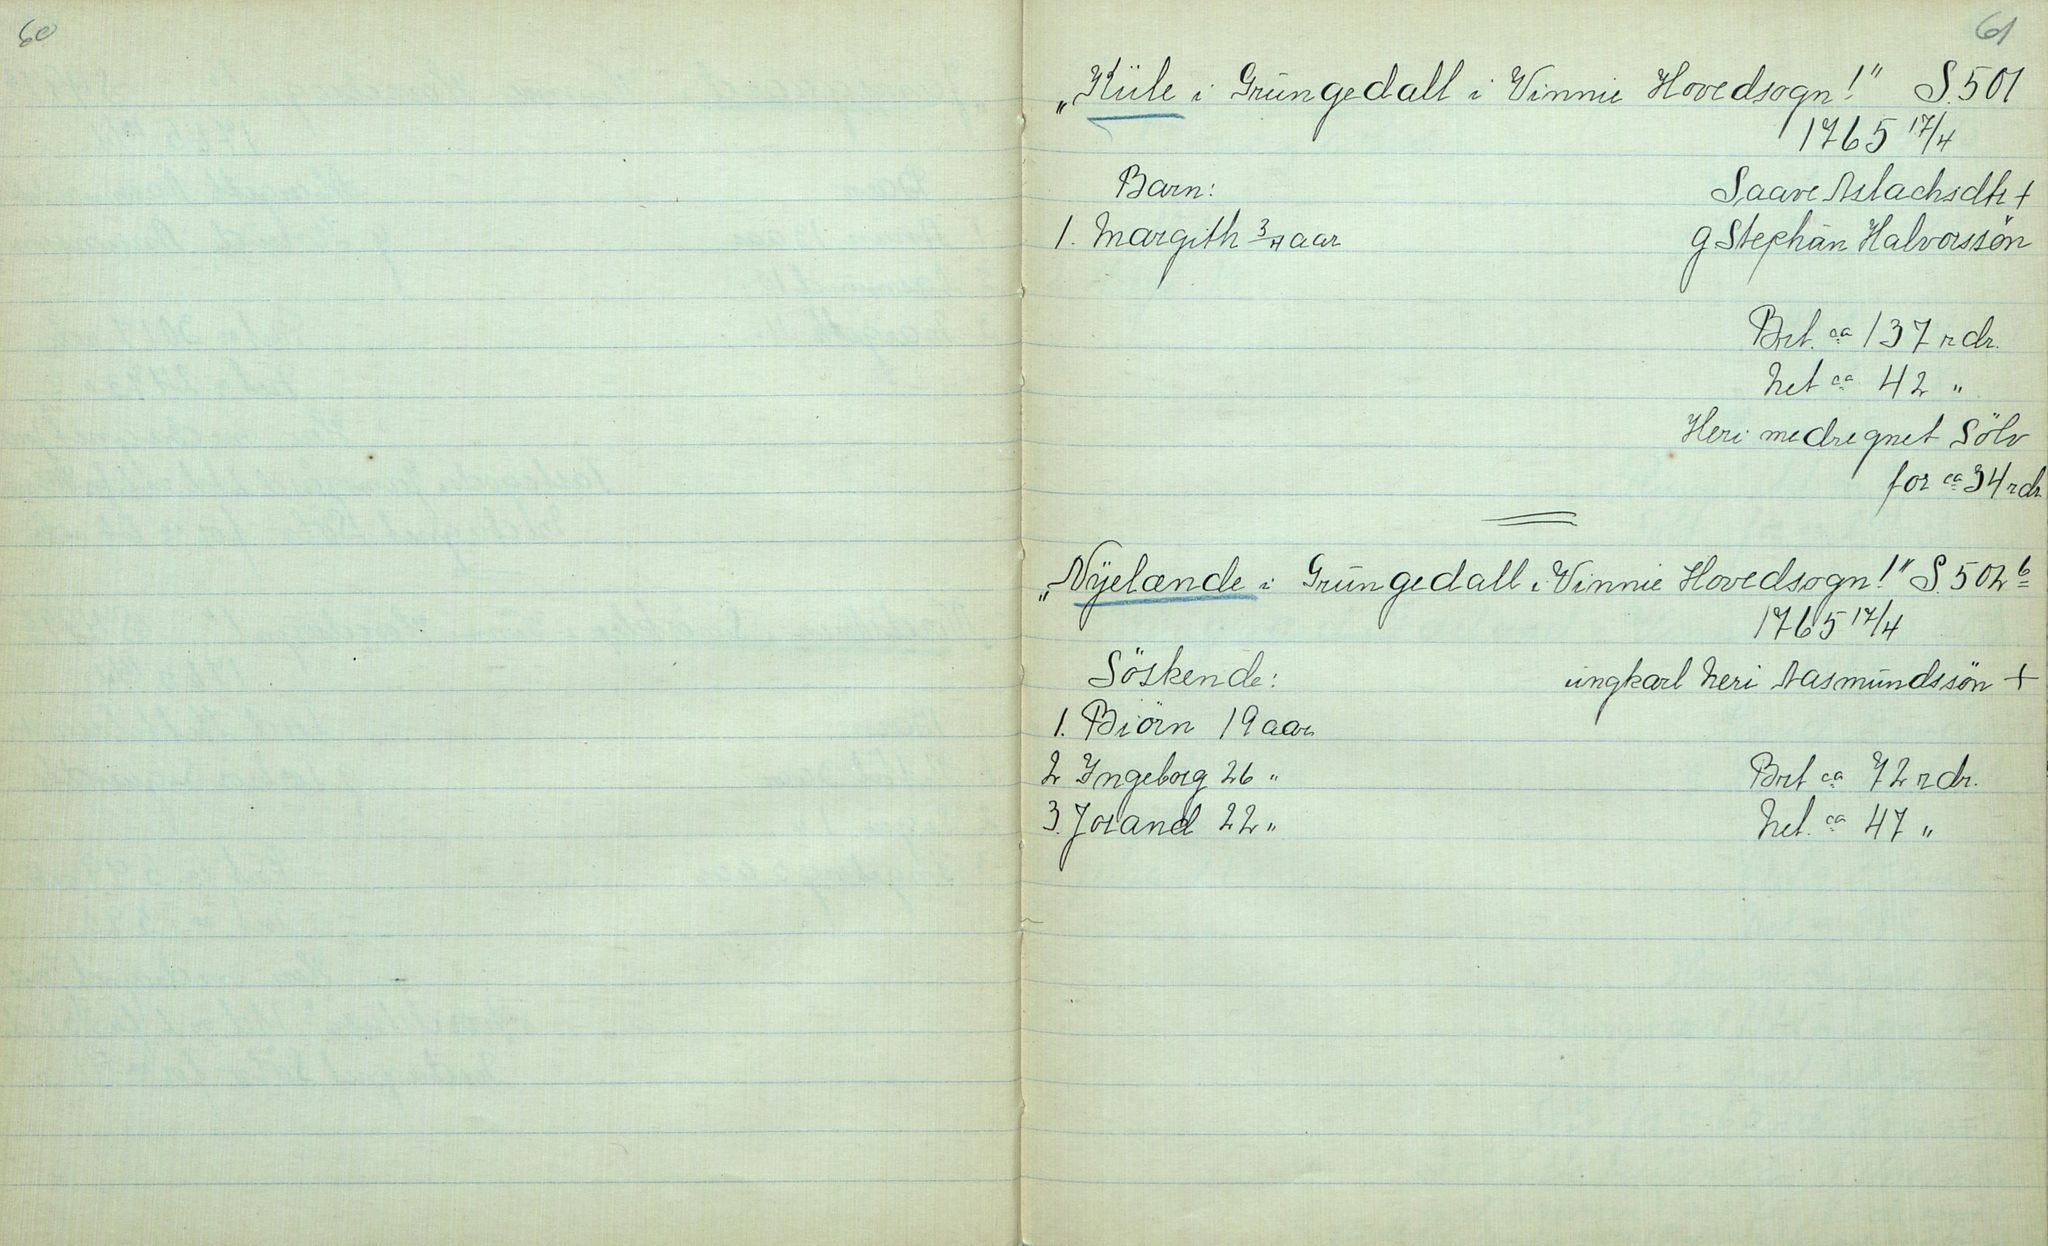 60
61
„Küle i Grüngedall i Vinnie Hovedsogn!" S. 501
1765 17/4
Barn: Saave Aslachsdtr +
1. Margith 3/4 aar g Stephãn Halvorssön
Brt. ca 137 rdr.
Net ca 42 "
Heri medregnet Sölv
for ca 34 rdr
„Nÿelænde i Grüngedall i Vinnie Hovedsogn!" S. 502 b
1765 17/4
Söskende: ungkarl Neri Aasmundssön +
1. Biörn 19 aar
2 Yngeborg 26 " Brt ca 72 rdr.
3. Jorand 22 " Net. ca 47 "